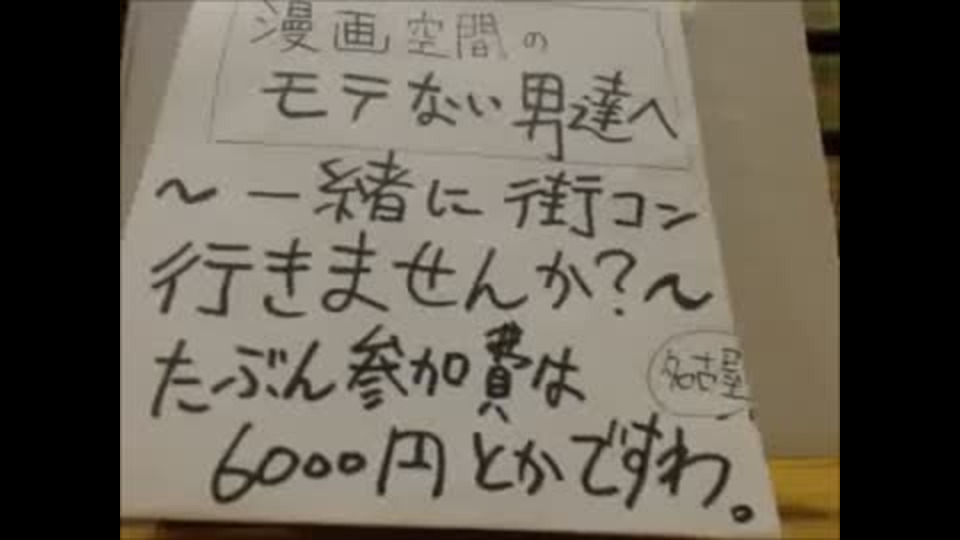 漫画空間の
モテない男達へ
～一緒に街コン
行きませんか?～
たぶん参加費は
名古屋
6000円とかですわ。